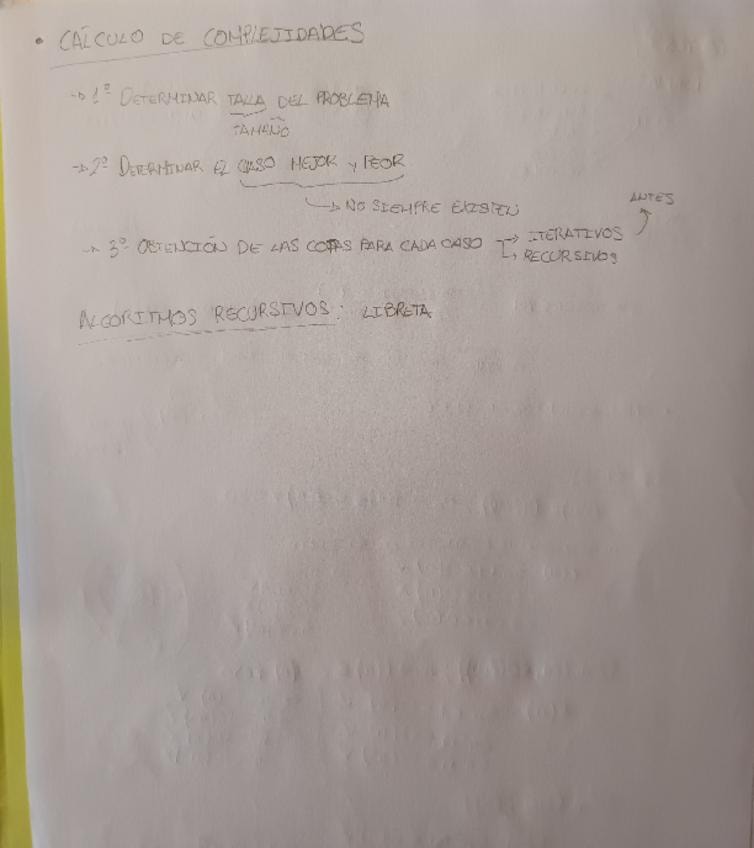 • CÁLCULO DE COMPLEJIDADES
→ 1º DETERMINAR TALLA DEL PROBLEMA
TAMAÑO
→ 2º DETERMINAR EL CASO MEJOR y PEOR
→ NO SIEMPRE EXISTEN
ANTES
→ 3º OBTENCIÓN DE LAS COTAS PARA CADA CASO → ITERATIVOS
→ RECURSIVOS
ALGORITMOS RECURSIVOS: LIBRETA